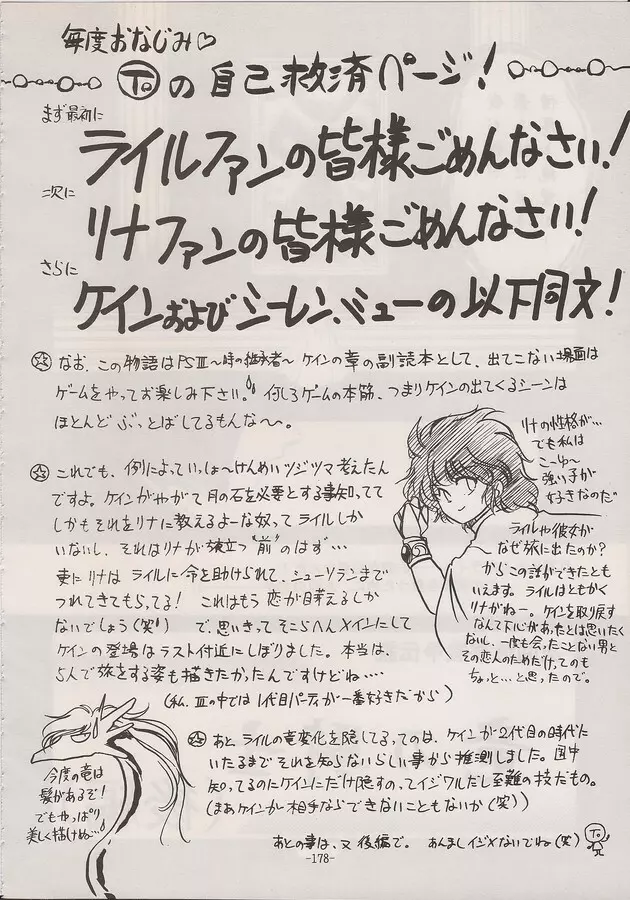 毎度おなじみ♡
Toの自己救済ページ!
まず最初に
ライルファンの皆様ごめんなさい!
次に
リナファンの皆様ごめんなさい!
さらに
ケインおよびシーレン、ミューの以下同文!
☆なお、この物語はPSⅢ〜時の継承者〜ケインの章の副読本として、出てこない場面は
ゲームをやってお楽しみ下さい。何しろゲームの本筋、つまりケインの出てくるシーンは
ほとんどぶっとばしてるもんな〜〜。
リナの性格が…
でも私は
こーゆ〜
強い子が
好きなのだ
☆これでも、例によっていっしょーけんめいツジツマ考えたん
ですよ。ケインがやがて月の石を必要とする事知ってて
しかもそれをリナに教えるよーな奴ってライルしか
いないし、それはリナが旅立つ"前"のはず…
更にリナはライルに命を助けられて、シューソランまで
つれてきてもらってる! これはもう恋が芽えるしか
ないでしょう(笑) で、思いきってそこらへんメインにして
ケインの登場はラスト付近にしぼりました。本当は、
5人で旅をする姿も描きたかったんですけどね…
(私、Ⅲの中では1代目パーティが一番好きだから)
ライルや彼女が
なぜ旅に出たのか?
からこの話ができたとも
いえます。ライルはともかく
リナがねー。ケインを取り戻す
なんて下心があったとは思いたく
ないし、一度も会ったことない男と
その恋人のためだけ、てのも
ちょっと…と思ったので。
☆あと、ライルの竜変化を隠してるってのは、ケインが2代目の時代に
いたるまでそれを知らないらしい事から推測しました。国中
知ってるのにケインにだけ隠すの、ってイジワルだし至難の技だもの。
(まあケインが相手ならできないこともないか(笑))
今度の竜は
髪があるぞ!
でもやっぱり
美しく描けぬ…
あとの事は、又後編で。 あんましイジメないでね(笑)
To
-178-